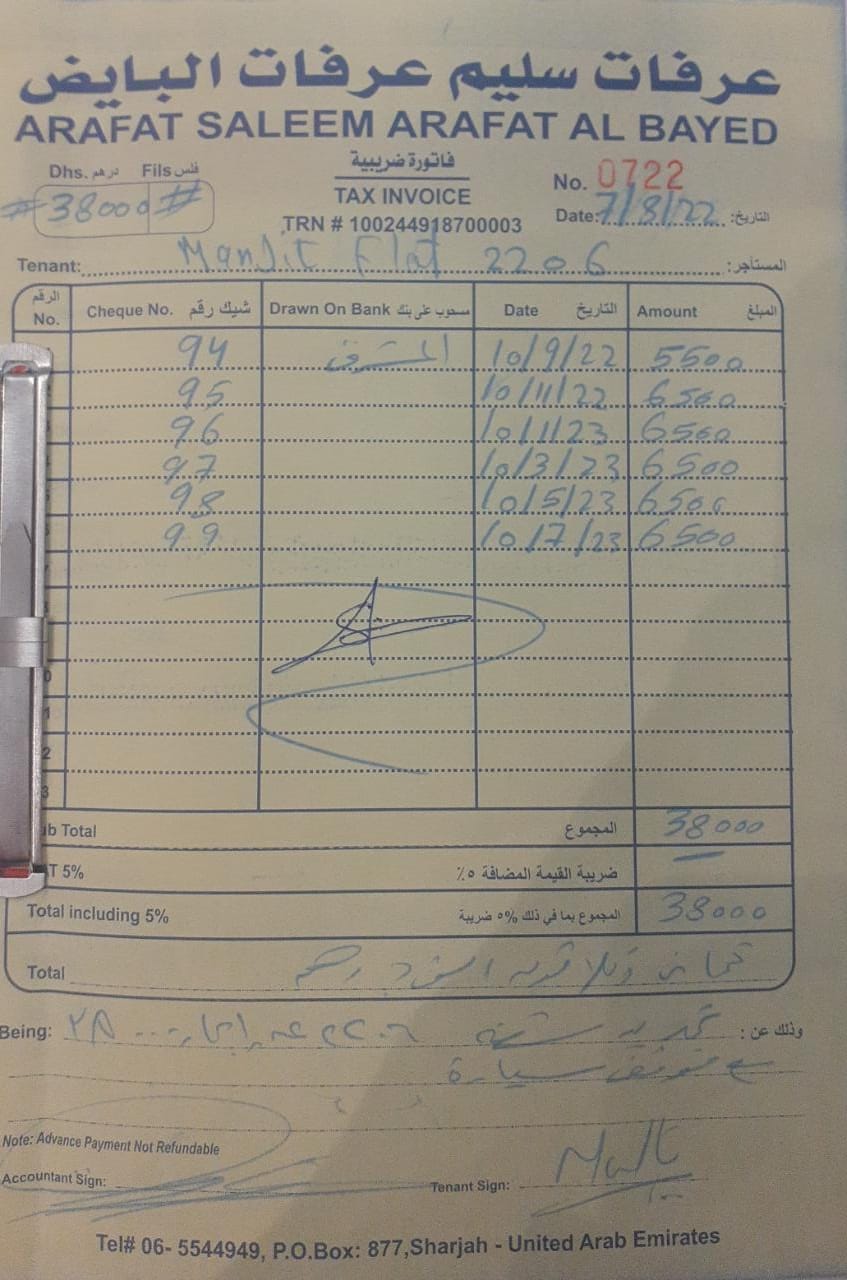 عرفات سليم عرفات البايض
ARAFAT SALEEM ARAFAT AL BAYED
Dhs. درهم Fils فلس
#38000#
فاتورة ضريبية
TAX INVOICE
TRN # 100244918700003
No. 0722
Date: 7/8/22 التاريخ:
Tenant: Manjit Flat 2206 المستأجر:
الرقم No. Cheque No. شيك رقم Drawn On Bank مسحوب على بنك Date التاريخ Amount المبلغ
94 المشرق 10/9/22 5500
95 10/11/22 6500
96 10/1/23 6500
97 10/3/23 6500
98 10/5/23 6500
99 10/7/23 6500
0
1
2
3
b Total المجموع 38000
T 5% ضريبة القيمة المضافة ٥٪ —
Total including 5% المجموع بما في ذلك 5% ضريبة 38000
Total ثمانية وثلاثون الف درهم
Being: وذلك عن: تجديد شقة ٢٢٠٦
مع موقف سيارة
Note: Advance Payment Not Refundable
Accountant Sign:
Tenant Sign:
Tel# 06- 5544949, P.O.Box: 877,Sharjah - United Arab Emirates